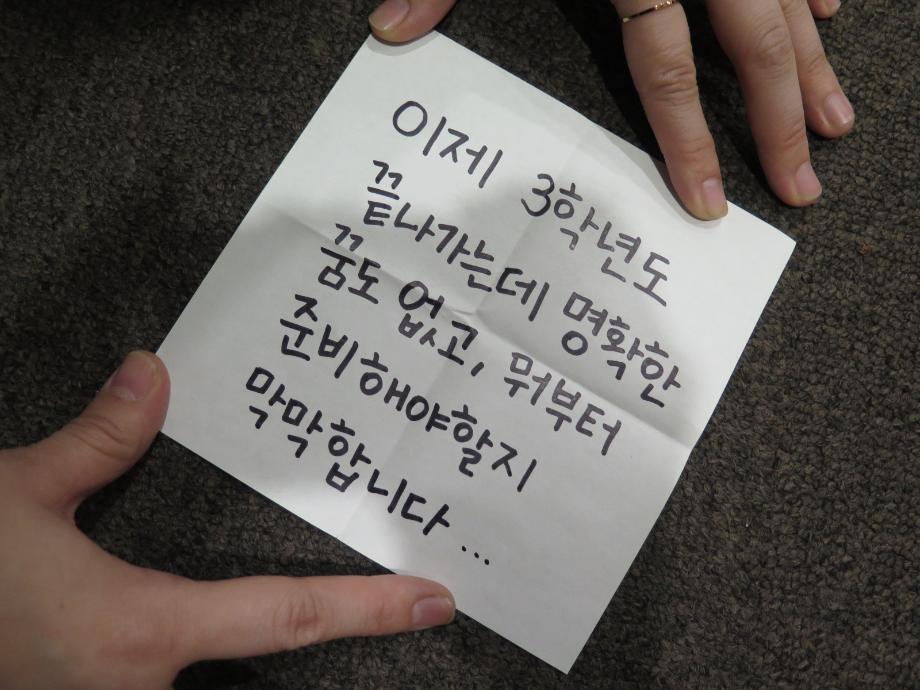 이제 3학년도
끝나가는데 명확한
꿈도 없고, 뭐부터
준비해야할지
막막합니다...